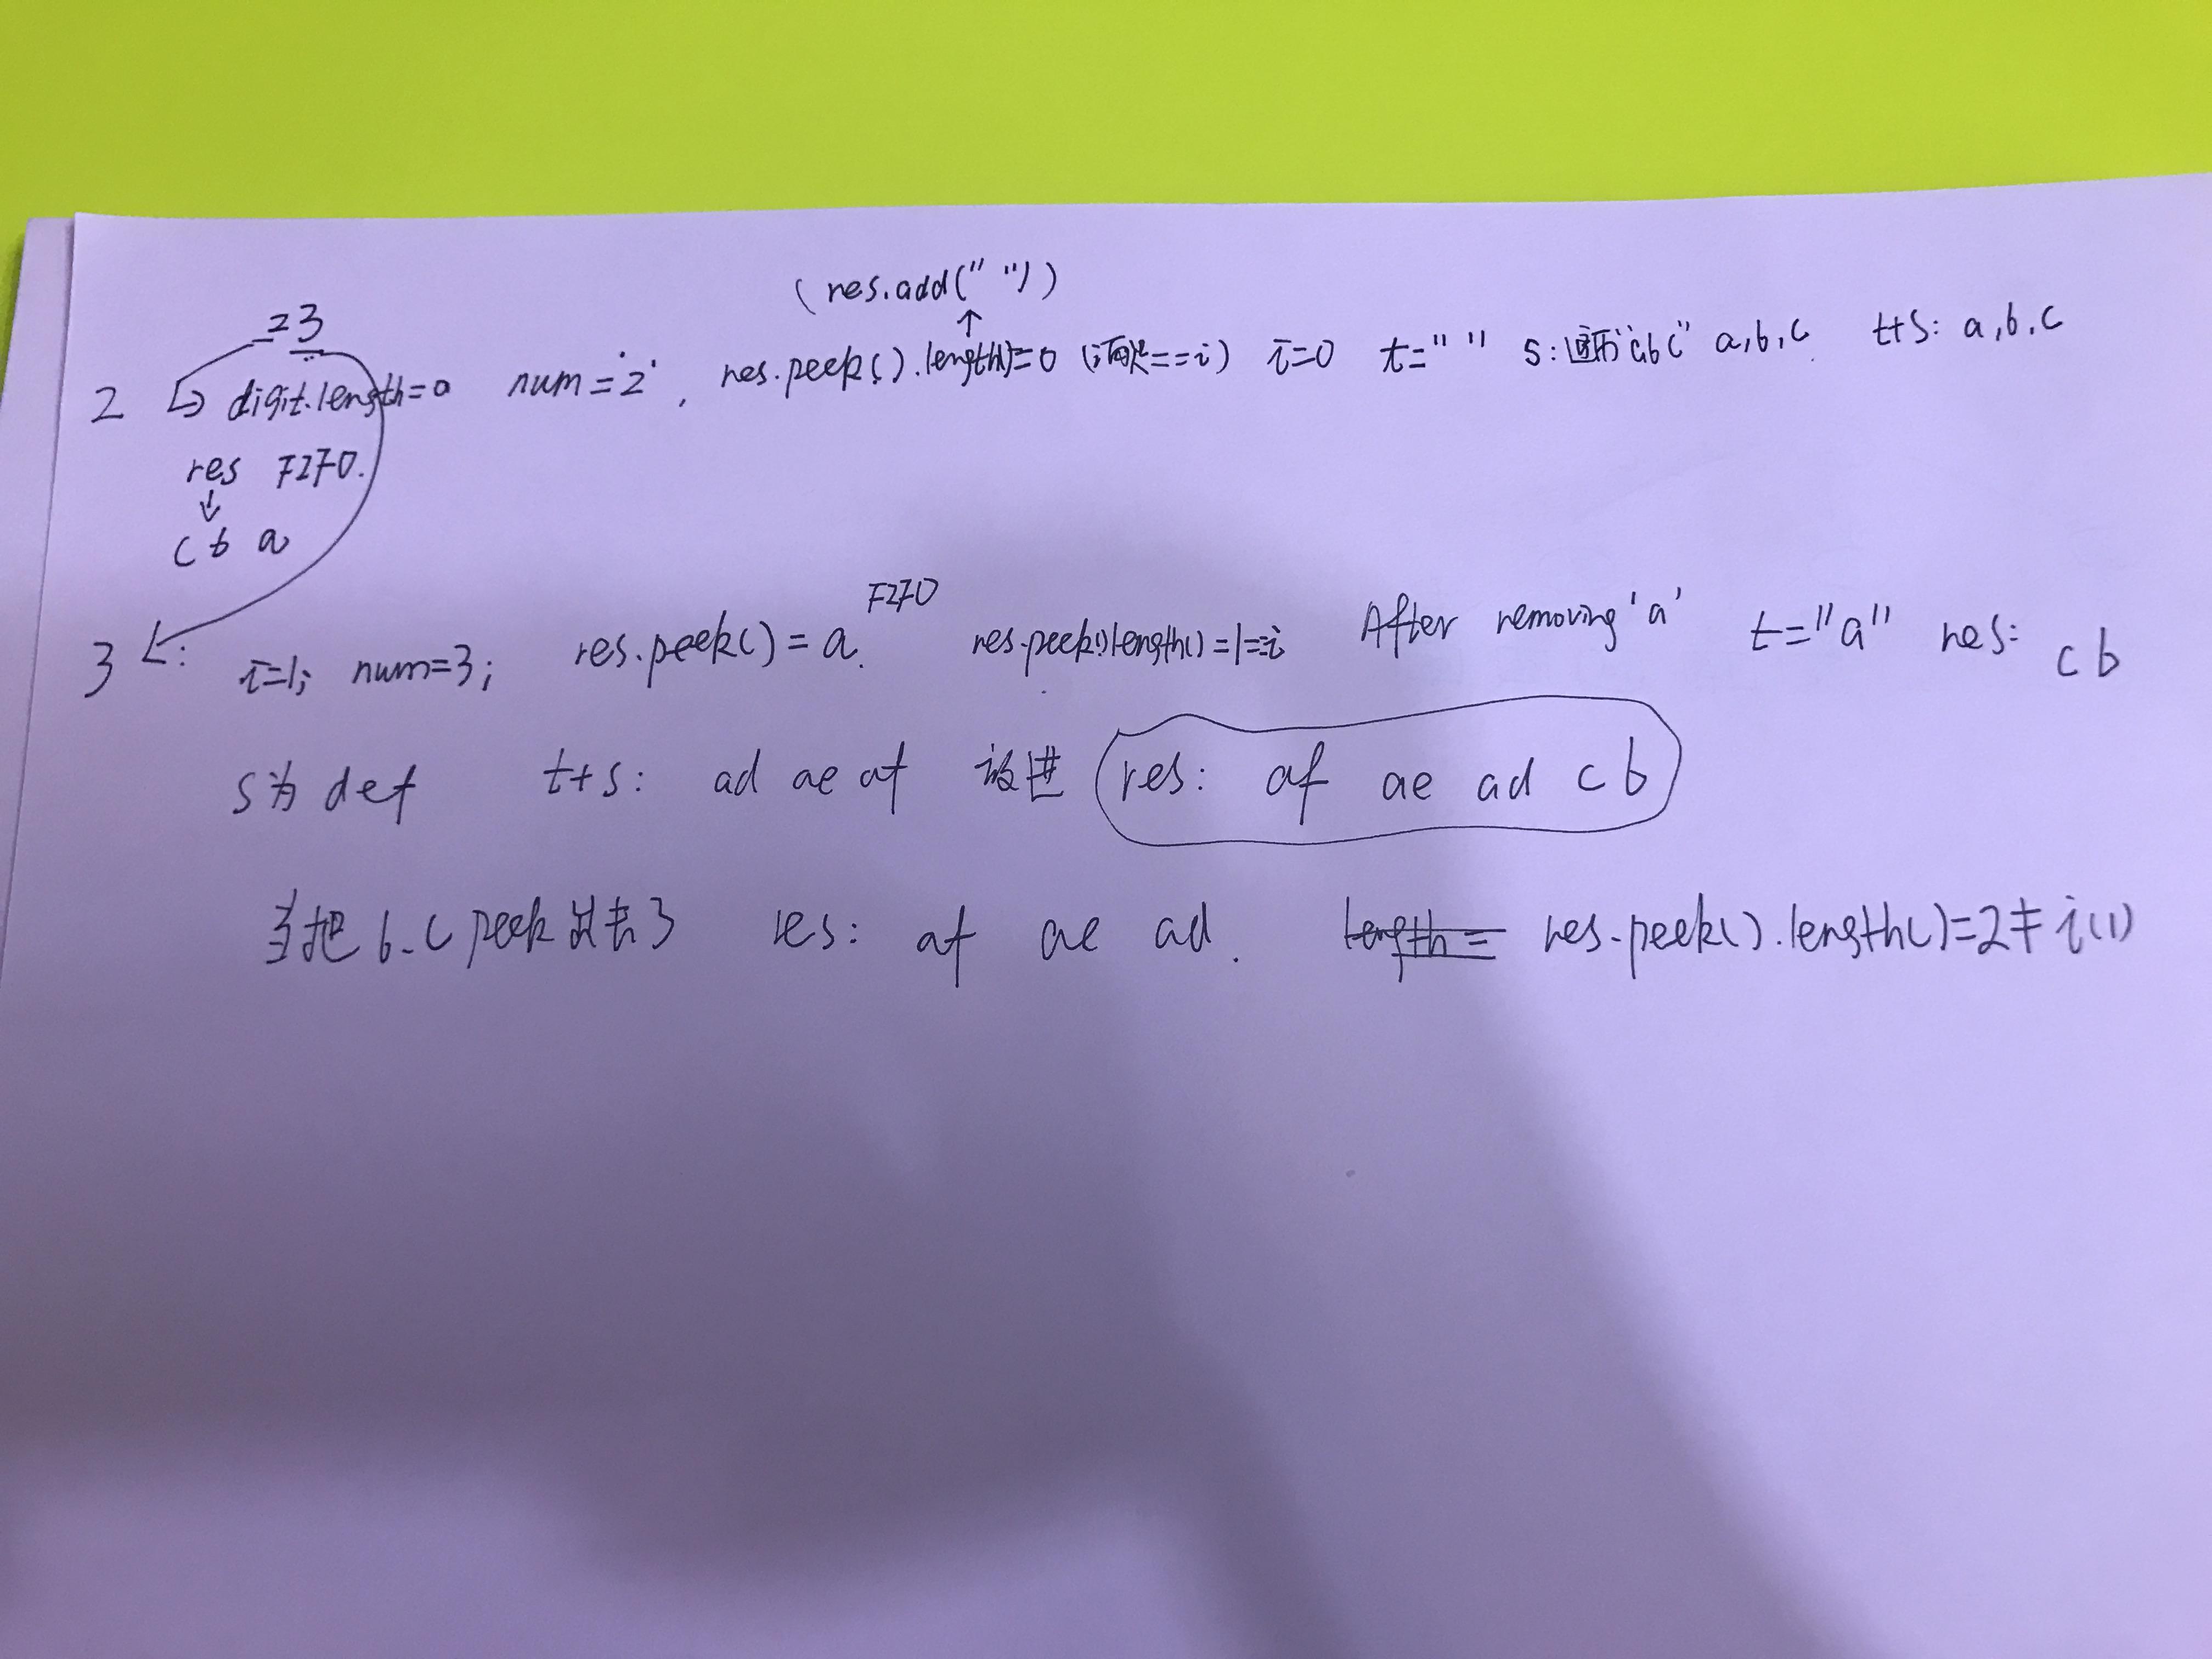 (res.add(" "))
23
2 ↳ digit.length=0 num='2', res.peek().length()=0 (==i) i=0 t=" " s:遍历"abc" a,b,c t+s: a,b,c
res FIFO.
↓
c b a
FIFO
3 : i=1; num=3; res.peek()=a. res.peek().length()=1==i After removing 'a' t="a" res: c b
s为 def t+s: ad ae af 被进 res: af ae ad c b
当把 b.c peek 过去了 res: af ae ad. length= res.peek().length()=2≠i(1)